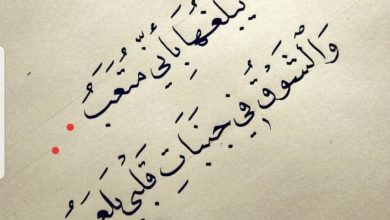 يُبلغُهَا بِأَنِّي مُتعَبُ
وَالشَّوْقُ فِي جَنَبَاتِ قَلْبِي يَلعَبُ